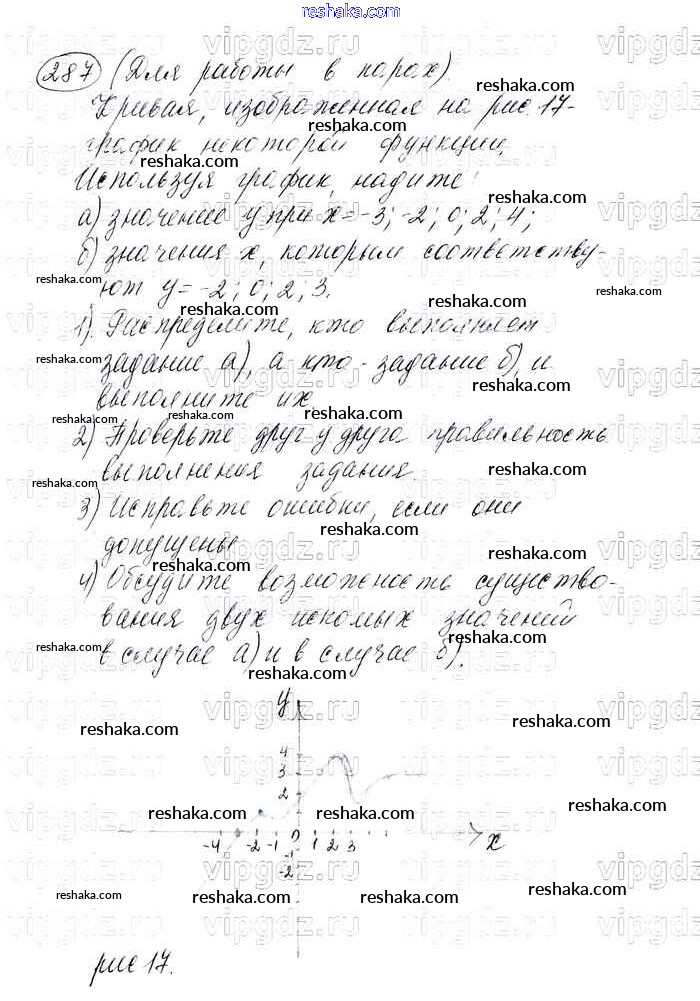 reshaka.com
287 (Для работы в парах).
Кривая, изображенная на рис. 17-
график некоторой функции.
Используя график, найдите:
а) значение у при х = -3; -2; 0; 2; 4;
б) значения х, которым соответству-
ют у = -2; 0; 2; 3.
1). Распределите, кто выполняет
задание а), а кто - задание б), и
выполните их.
2) Проверьте друг у друга правильность
выполнения задания.
3) Исправьте ошибки, если они
допущены
4) Обсудите возможность существо-
вания двух искомых значений
в случае а) и в случае б).
у
4
3
2
-4 -2 -1 0 1 2 3 х
-1
-2
рис 17.